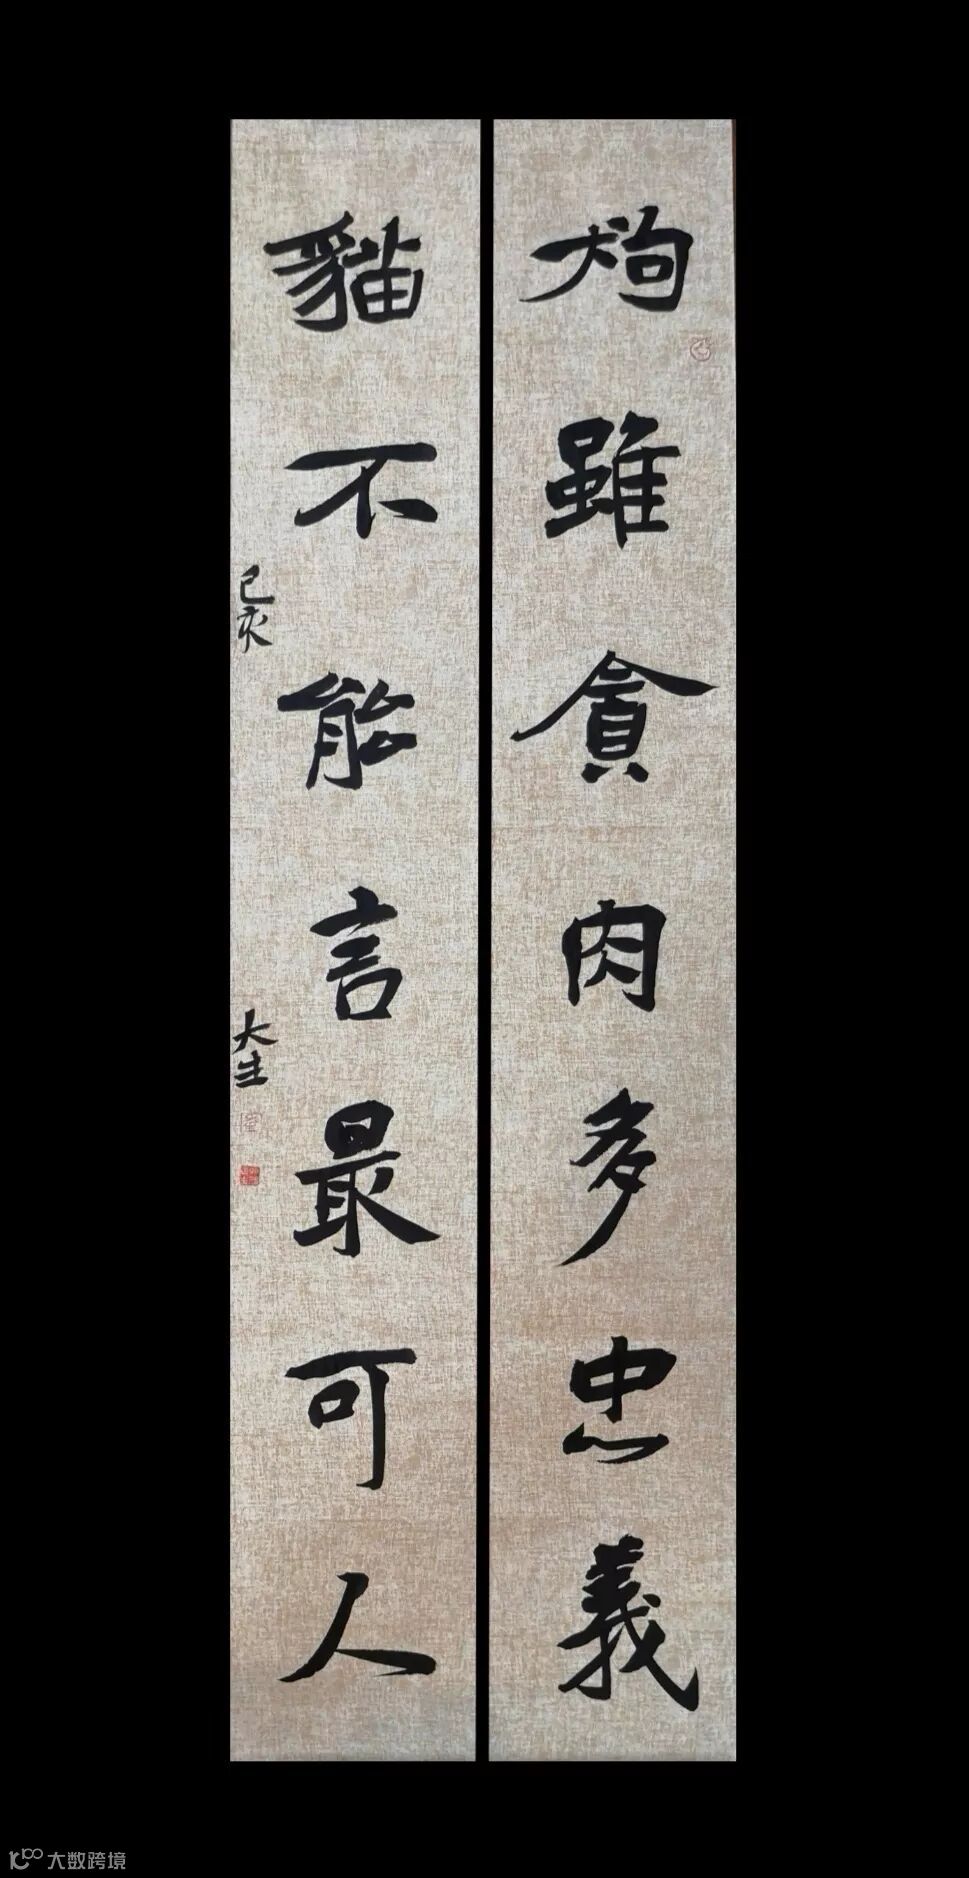 狗雖貪肉多忠義
貓不能言最可人
己亥
大生
大数跨境